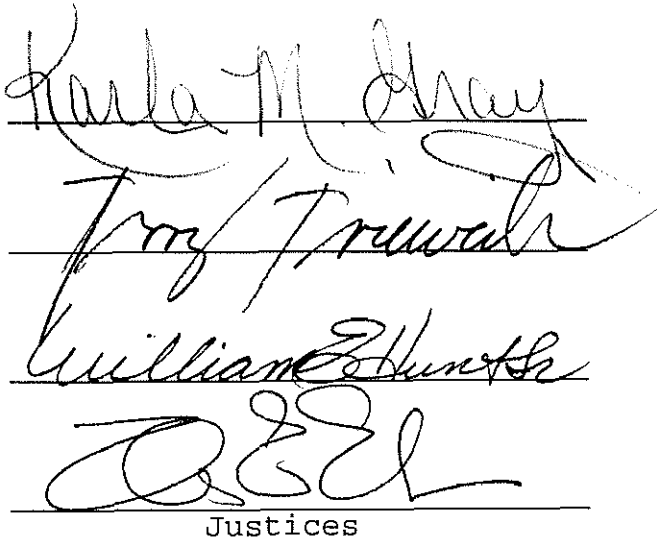 Karla M. Gray
Terry Trieweiler
William E. Hunt Sr
Justices